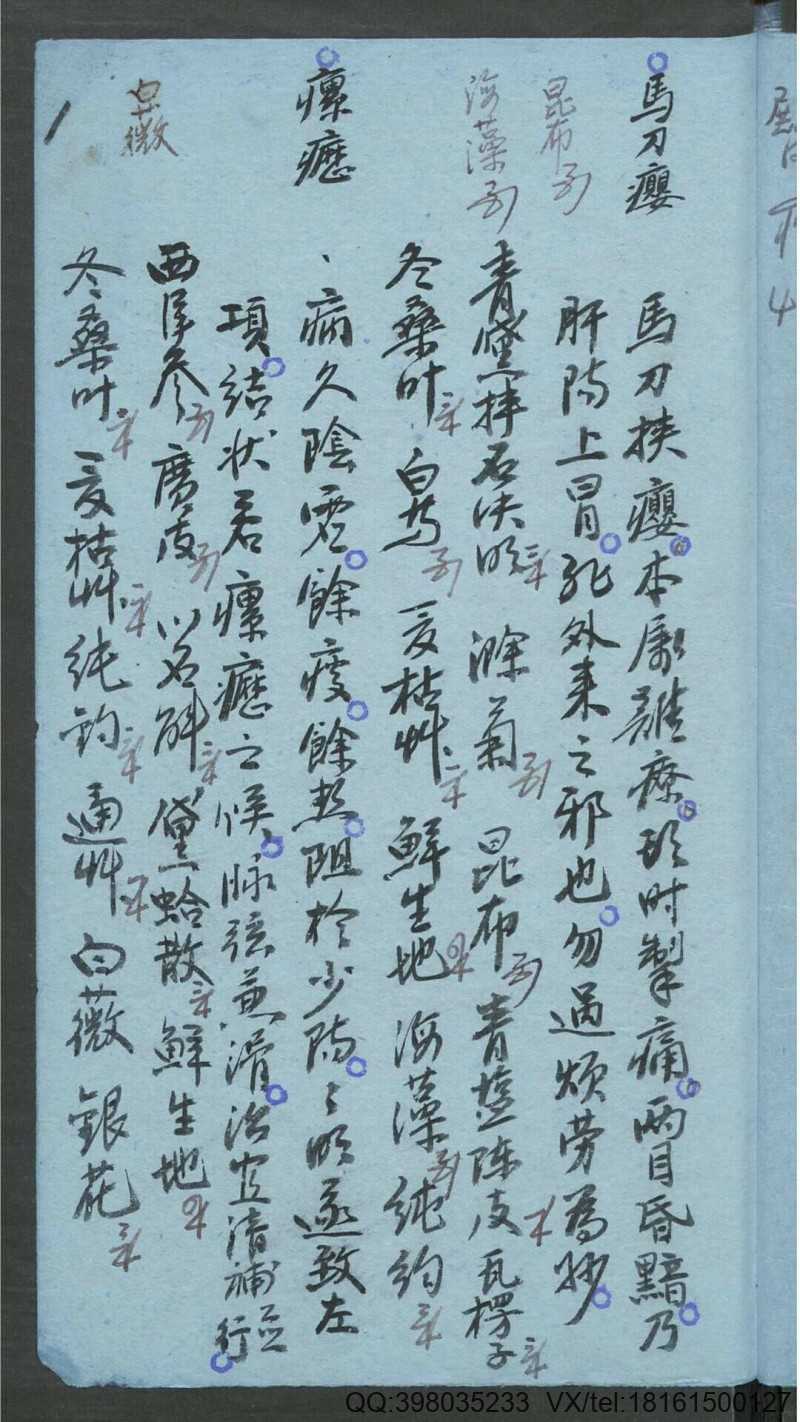 馬刀癭
馬刀挾癭本屬難療項時掣痛兩目昏黯乃
肝陽上冒非外来之邪也勿過烦劳為妙
昆布
海藻
青黛拌石决明 滁菊 昆布 青蒿 陈皮 瓦楞子
冬桑叶 白芍 夏枯艸 鮮生地 海藻 纯钓
瘰癧
病久陰虚餘痰餘热阻於少陽々明遂致左
項結状若瘰癧之候脉弦兼滑治宜清補並行
西洋参 廣皮 川石斛 黛蛤散 鮮生地
白薇
冬桑叶 夏枯艸 纯钓 通艸 白薇 銀花
QQ:398035233 VX/tel:18161500127